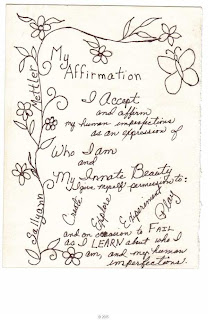 My
Affirmation
I Accept
and affirm
my human imperfections
as an expression of
Who I am
and
My Innate Beauty
I give myself permission to:
Create
Explore
Experiment
Play
and on occasion to FAIL
as I LEARN about who I
am, and my human
imperfections.
I Sallyann Mettler